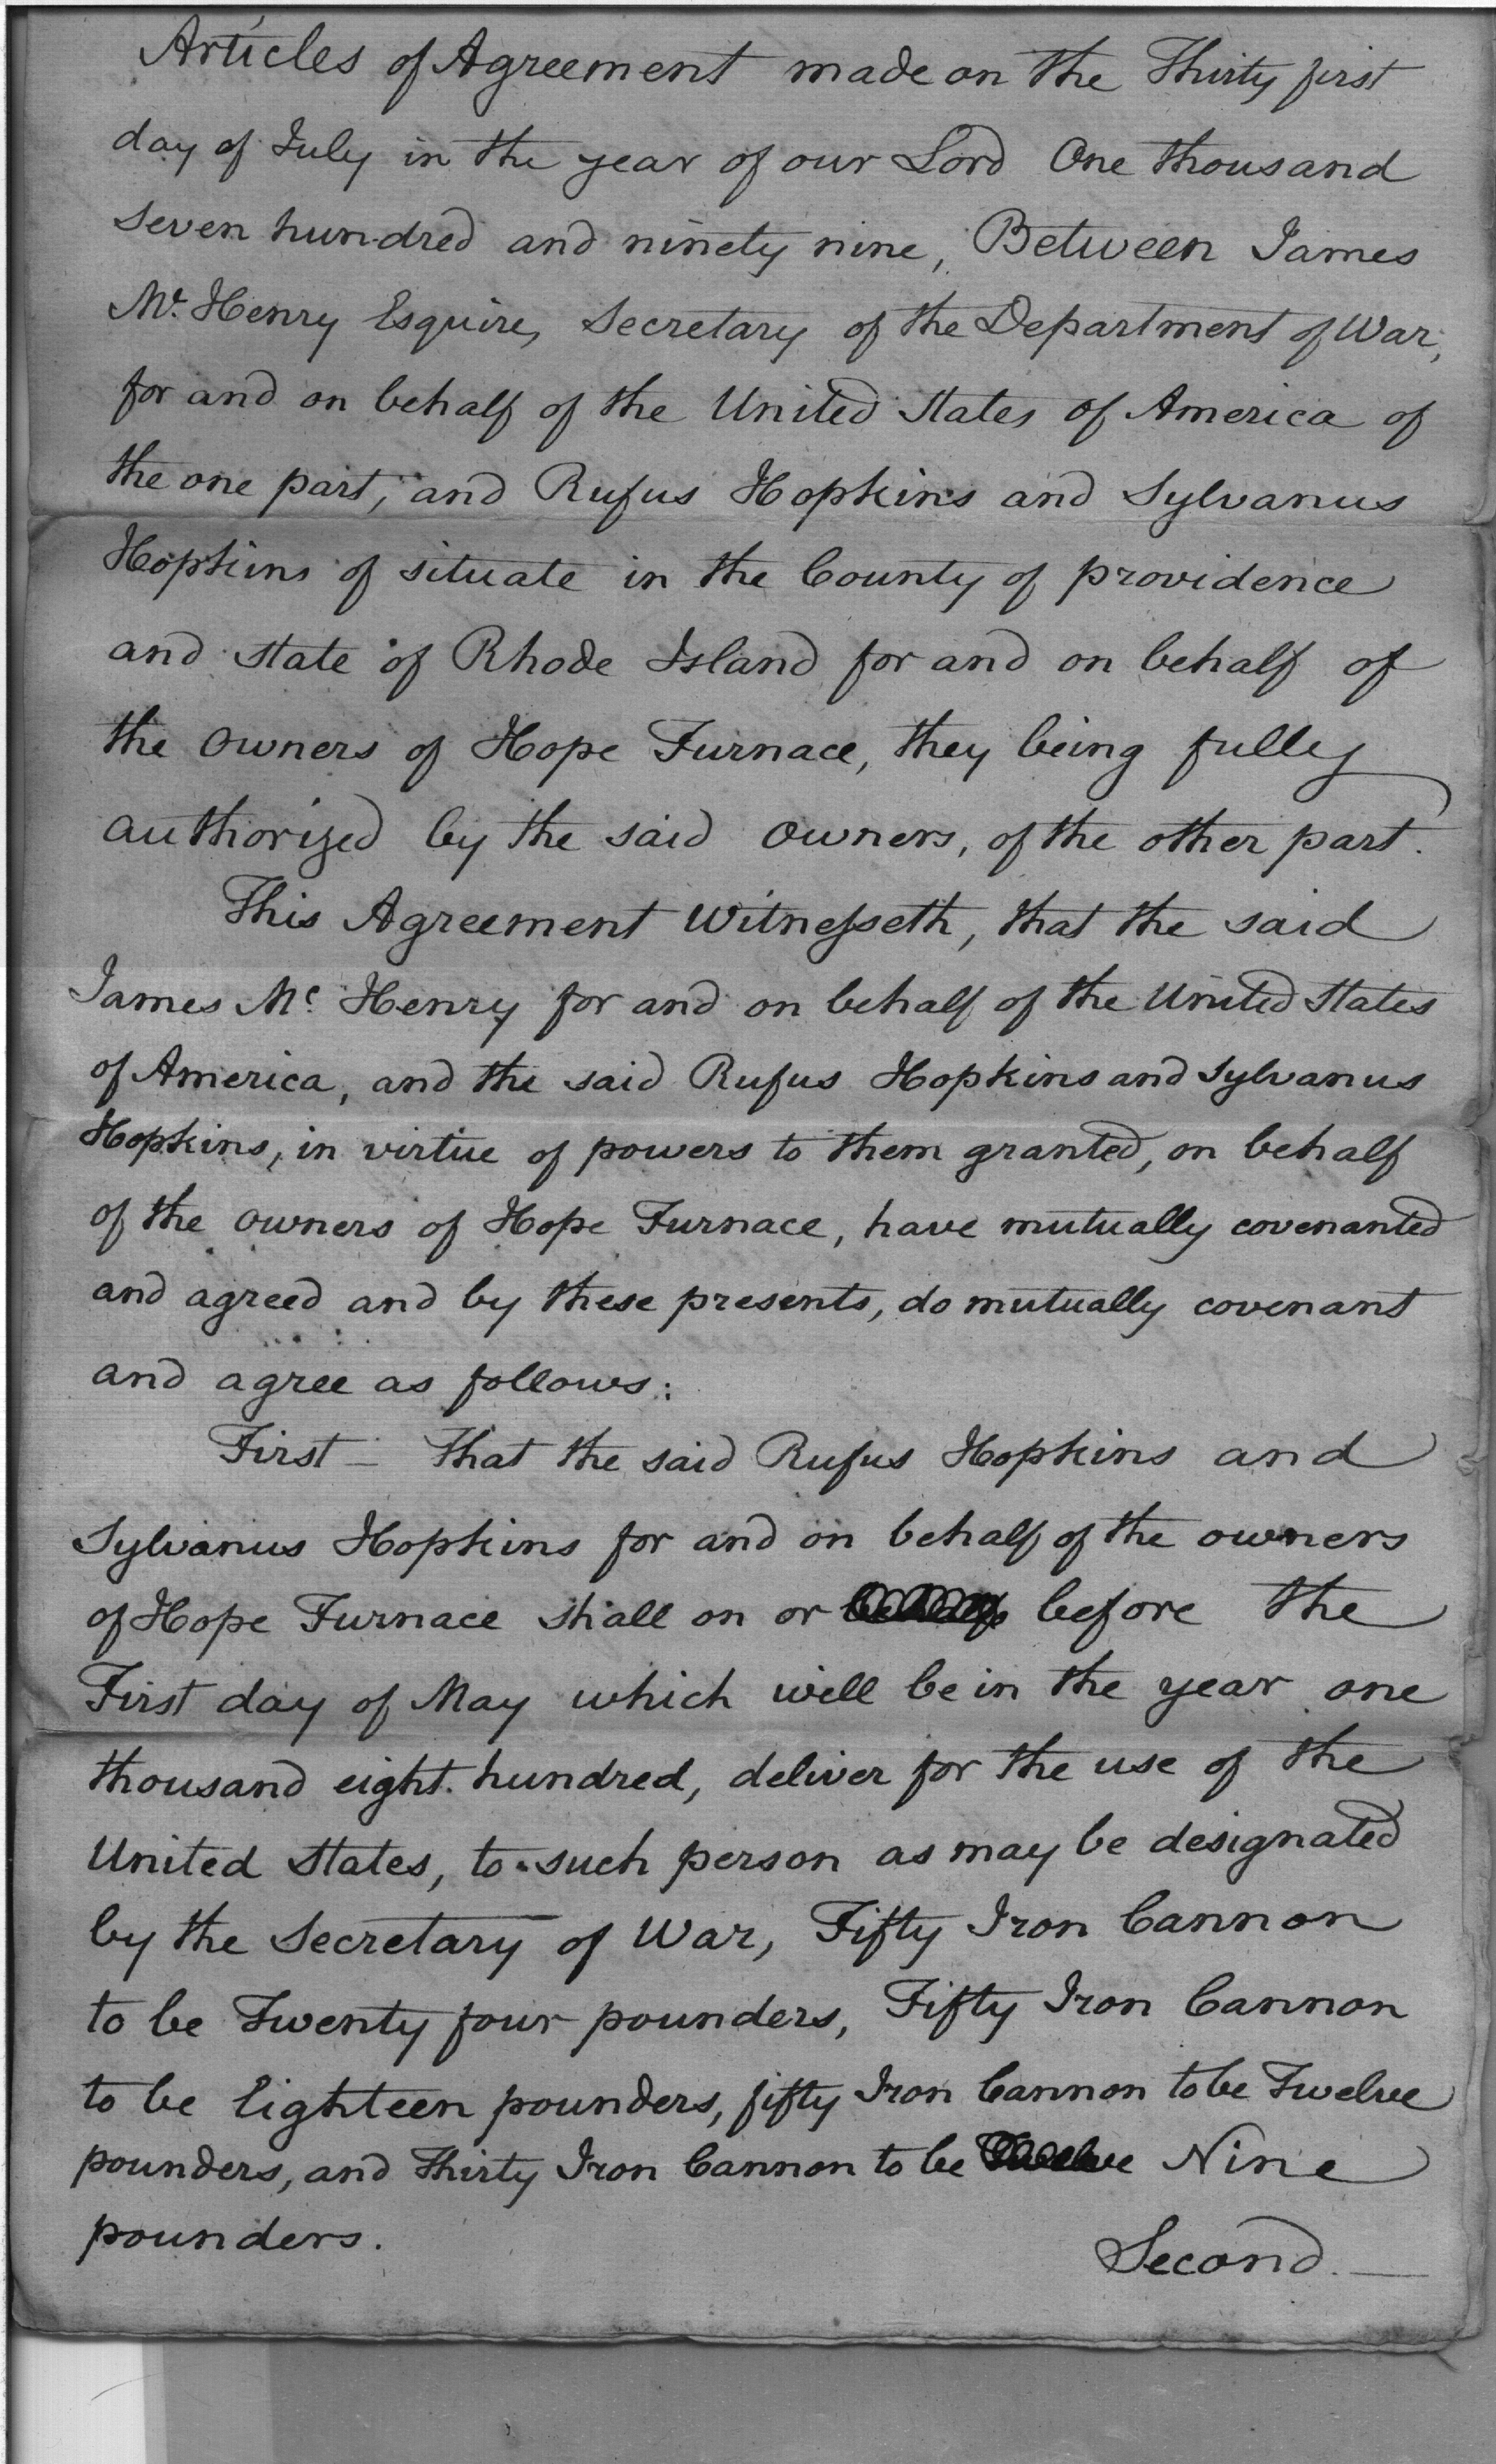 Articles of Agreement made on the Thirty first
day of July in the year of our Lord One thousand
seven hundred and ninety nine, Between James
Mc. Henry Esquire, Secretary of the Department of War,
for and on behalf of the United States of America of
the one part, and Rufus Hopkins and Sylvanus
Hopkins of situate in the County of providence
and state of Rhode Island for and on behalf of
the owners of Hope Furnace, they being fully
authorized by the said owners, of the other part.
This Agreement Witnesseth, that the said
James Mc. Henry for and on behalf of the United States
of America, and the said Rufus Hopkins and Sylvanus
Hopkins, in virtue of powers to them granted, on behalf
of the owners of Hope Furnace, have mutually covenanted
and agreed and by these presents, do mutually covenant
and agree as follows:
First - That the said Rufus Hopkins and
Sylvanus Hopkins for and on behalf of the owners
of Hope Furnace shall on or before the
First day of May which will be in the year one
thousand eight hundred, deliver for the use of the
United States, to such person as may be designated
by the Secretary of War, Fifty Iron Cannon
to be Twenty four pounders, Fifty Iron Cannon
to be Eighteen pounders, fifty Iron Cannon to be Twelve
pounders, and Thirty Iron Cannon to be Twelve Nine
pounders.
Second. —